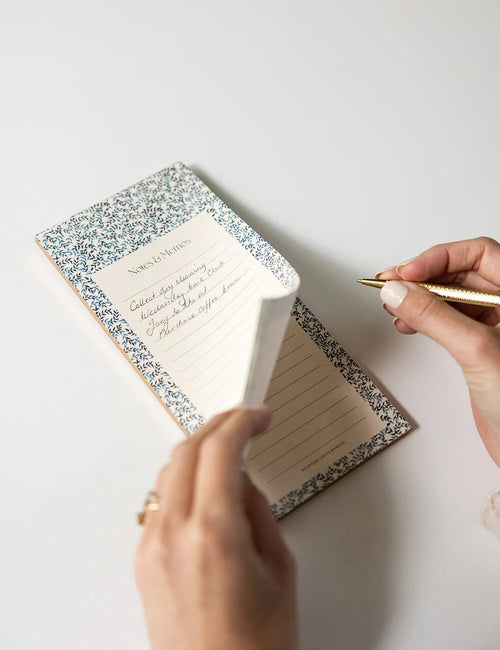 Notes & Memos
Collect dry cleaning
Wednesday book club
to the vet
Purchase coffee beans
BESPOKE LETTERPRESS